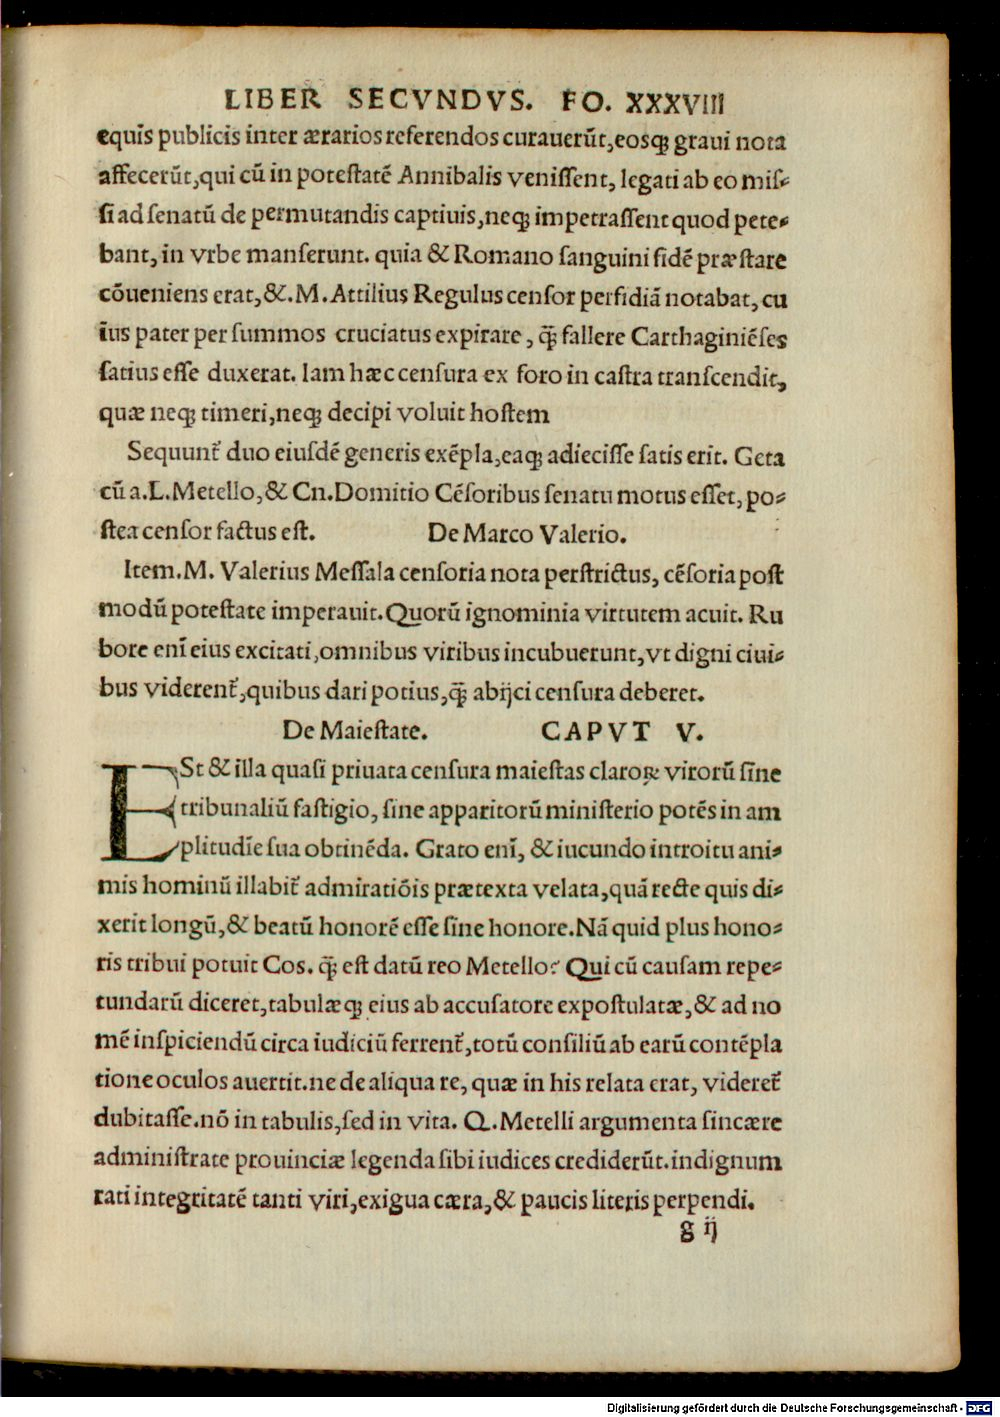 LIBER SECVNDVS. FO. XXXVIII
equis publicis inter ærarios referendos curauerũt,eosqꝫ graui nota
affecerũt,qui cũ in poteſtatẽ Annibalis veniſſent, legati ab eo miſ⸗
ſi ad ſenatũ de permutandis captiuis,neqꝫ impetraſſent quod pete⸗
bant, in vrbe manſerunt. quia & Romano ſanguini fidẽ præſtare
cõueniens erat,&.M. Attilius Regulus cenſor perfidiã notabat, cu
ius pater per ſummos cruciatus expirare, q̃ fallere Carthaginiẽſes
ſatius eſſe duxerat. Iam hæc cenſura ex foro in caſtra tranſcendit,
quæ neqꝫ timeri,neqꝫ decipi voluit hoſtem
Sequunt᷑ duo eiuſdẽ generis exẽpla,eaqꝫ adieciſſe ſatis erit. Geta
cũ a.L.Metello,& Cn.Domitio Cẽſoribus ſenatu motus eſſet, po⸗
ſtea cenſor factus eſt. De Marco Valerio.
Item.M. Valerius Meſſala cenſoria nota perſtrictus, cẽſoria poſt
modũ poteſtate imperauit.Quorũ ignominia virtutem acuit. Ru
bore enĩ eius excitati,omnibus viribus incubuerunt,vt digni ciui⸗
bus viderent᷑,quibus dari potius,q̃ abijci cenſura deberet.
De Maieſtate. CAPVT V.
ESt & illa quaſi priuata cenſura maieſtas claroꝝ virorũ ſine
tribunaliũ faſtigio, ſine apparitorũ miniſterio potẽs in am
plitudĩe ſua obtinẽda. Grato enĩ, & iucundo introitu ani⸗
mis hominũ illabit᷑ admiratiõis prætexta velata,quã recte quis di⸗
xerit longũ,& beatũ honorẽ eſſe ſine honore.Nã quid plus hono⸗
ris tribui potuit Cos. q̃ eſt datũ reo Metello? Qui cũ cauſam repe⸗
tundarũ diceret,tabulæqꝫ eius ab accuſatore expoſtulatæ,& ad no
mẽ inſpiciendũ circa iudiciũ ferrent᷑,totũ conſiliũ ab earũ contẽpla
tione oculos auertit.ne de aliqua re, quæ in his relata erat, videret᷑
dubitaſſe.nõ in tabulis,ſed in vita. Q.Metelli argumenta ſincære
adminiſtrate prouinciæ legenda ſibi iudices crediderũt.indignum
rati integritatẽ tanti viri,exigua cæra,& paucis literis perpendi.
g ij
Digitalisierung gefördert durch die Deutsche Forschungsgemeinschaft - DFG